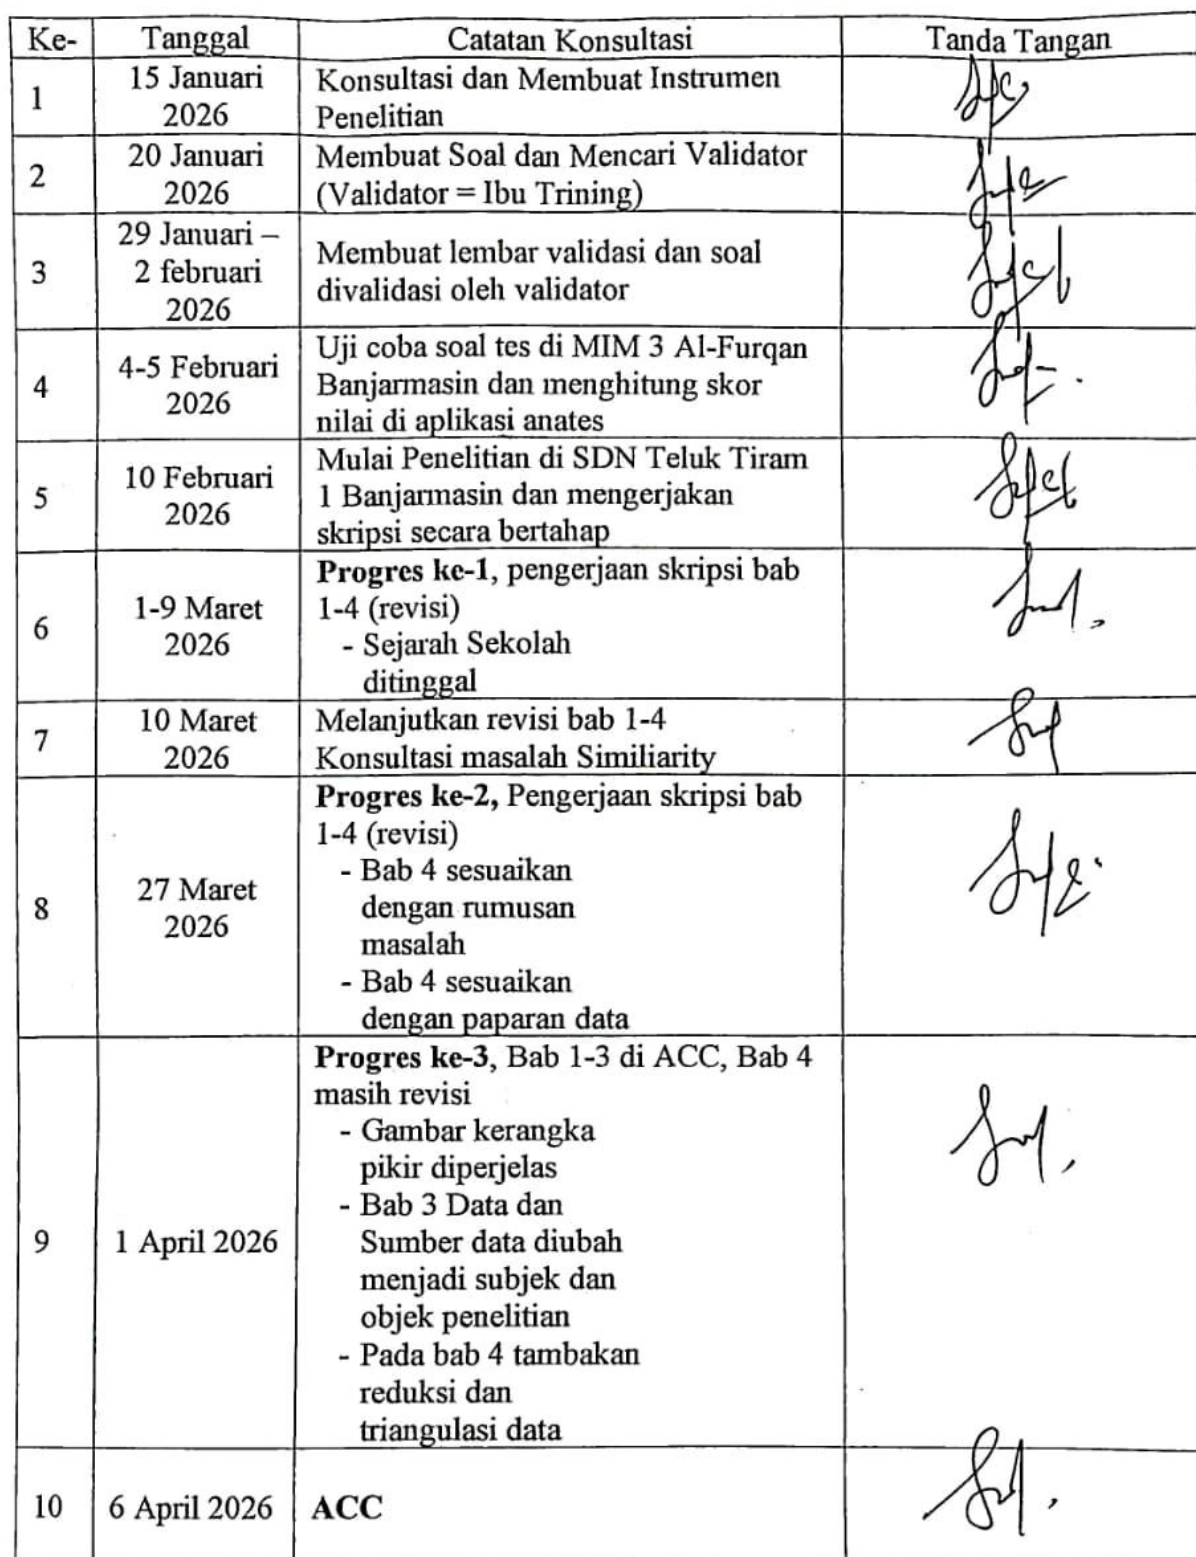 Ke- Tanggal Catatan Konsultasi Tanda Tangan
1 15 Januari 2026 Konsultasi dan Membuat Instrumen
Penelitian
2 20 Januari 2026 Membuat Soal dan Mencari Validator
(Validator = Ibu Trining)
3 29 Januari – 2 februari 2026 Membuat lembar validasi dan soal
divalidasi oleh validator
4 4-5 Februari 2026 Uji coba soal tes di MIM 3 Al-Furqan
Banjarmasin dan menghitung skor
nilai di aplikasi anates
5 10 Februari 2026 Mulai Penelitian di SDN Teluk Tiram
1 Banjarmasin dan mengerjakan
skripsi secara bertahap
6 1-9 Maret 2026 Progres ke-1, pengerjaan skripsi bab
1-4 (revisi)
- Sejarah Sekolah
ditinggal
7 10 Maret 2026 Melanjutkan revisi bab 1-4
Konsultasi masalah Similiarity
8 27 Maret 2026 Progres ke-2, Pengerjaan skripsi bab
1-4 (revisi)
- Bab 4 sesuaikan
dengan rumusan
masalah
- Bab 4 sesuaikan
dengan paparan data
9 1 April 2026 Progres ke-3, Bab 1-3 di ACC, Bab 4
masih revisi
- Gambar kerangka
pikir diperjelas
- Bab 3 Data dan
Sumber data diubah
menjadi subjek dan
objek penelitian
- Pada bab 4 tambakan
reduksi dan
triangulasi data
10 6 April 2026 ACC